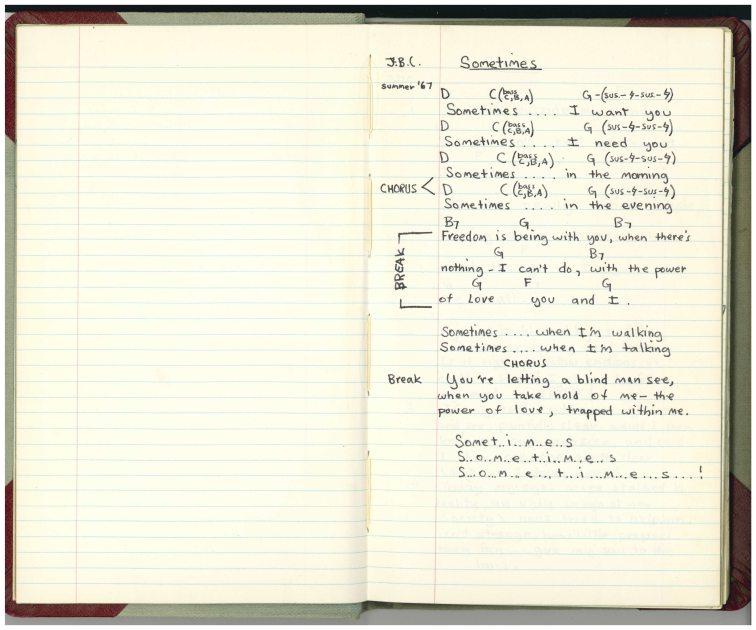 J.B.C. Sometimes
summer '67
D C (bass C,B,A) G-(sus-4-sus-4)
Sometimes .... I want you
D C (bass C,B,A) G (sus-4-sus-4)
Sometimes .... I need you
D C (bass C,B,A) G (sus-4-sus-4)
Sometimes .... in the morning
CHORUS < D C (bass C,B,A) G (sus-4-sus-4)
Sometimes .... in the evening
B7 G B7
Freedom is being with you, when there's
G B7
BREAK nothing - I can't do, with the power
G F G
of Love you and I.
Sometimes .... when I'm walking
Sometimes .... when I'm talking
CHORUS
Break You're letting a blind man see,
when you take hold of me - the
power of love, trapped within me.
Somet..i..m..e..s
S..o..m..e..t..i..m..e..s
S...o...m...e...t...i...m...e...s....!